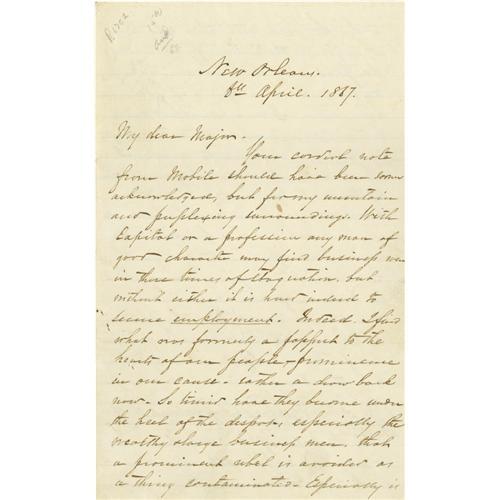 New Orleans.
8th April. 1867.
My dear Major.
Your cordial note
from Mobile should have been sooner
acknowledged, but for my uncertain
and perplexing surroundings. With
Capital or a profession any man of
good character may find business even
in these times of stagnation, but
without either it is hard indeed to
secure employment. Indeed, I find
what was formerly a passport to the
hearts of our people - prominence
in our cause - rather a draw back
now. So timid have they become under
the heel of the despot, especially the
wealthy & large business men, that
a prominent rebel is avoided as
a thing contaminated. Especially is